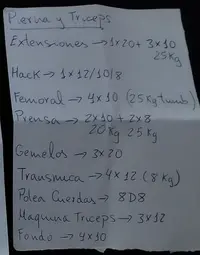 Pierna y Triceps
Extensiones → 1x20 + 3x10
25Kg
Hack → 1x12/10/8
Femoral → 4x10 (25Kg tumb)
Prensa → 2x10 + 2x8
20Kg 25Kg
Gemelos → 3x20
Trasnuca → 4x12 (8Kg)
Polea Cuerdas → 8D8
Maquina Triceps → 3x12
Fondo → 4x10